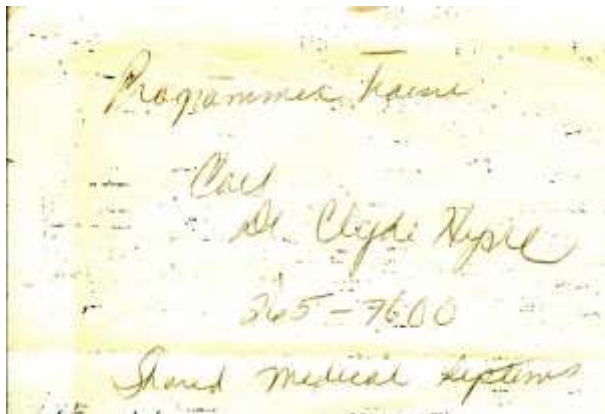 Programmer Trainee
Call
Dr. Clyde
265-7600
Shared Medical Systems